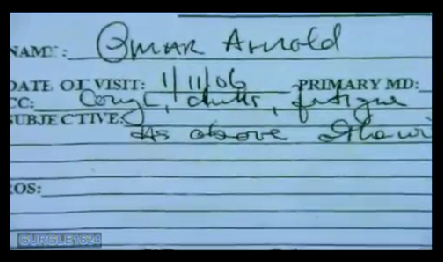 NAME: Omar Arnold
DATE OF VISIT: 1/11/06 PRIMARY MD:
CC: Cough, chills, fatigue
SUBJECTIVE:
As above
ROS: